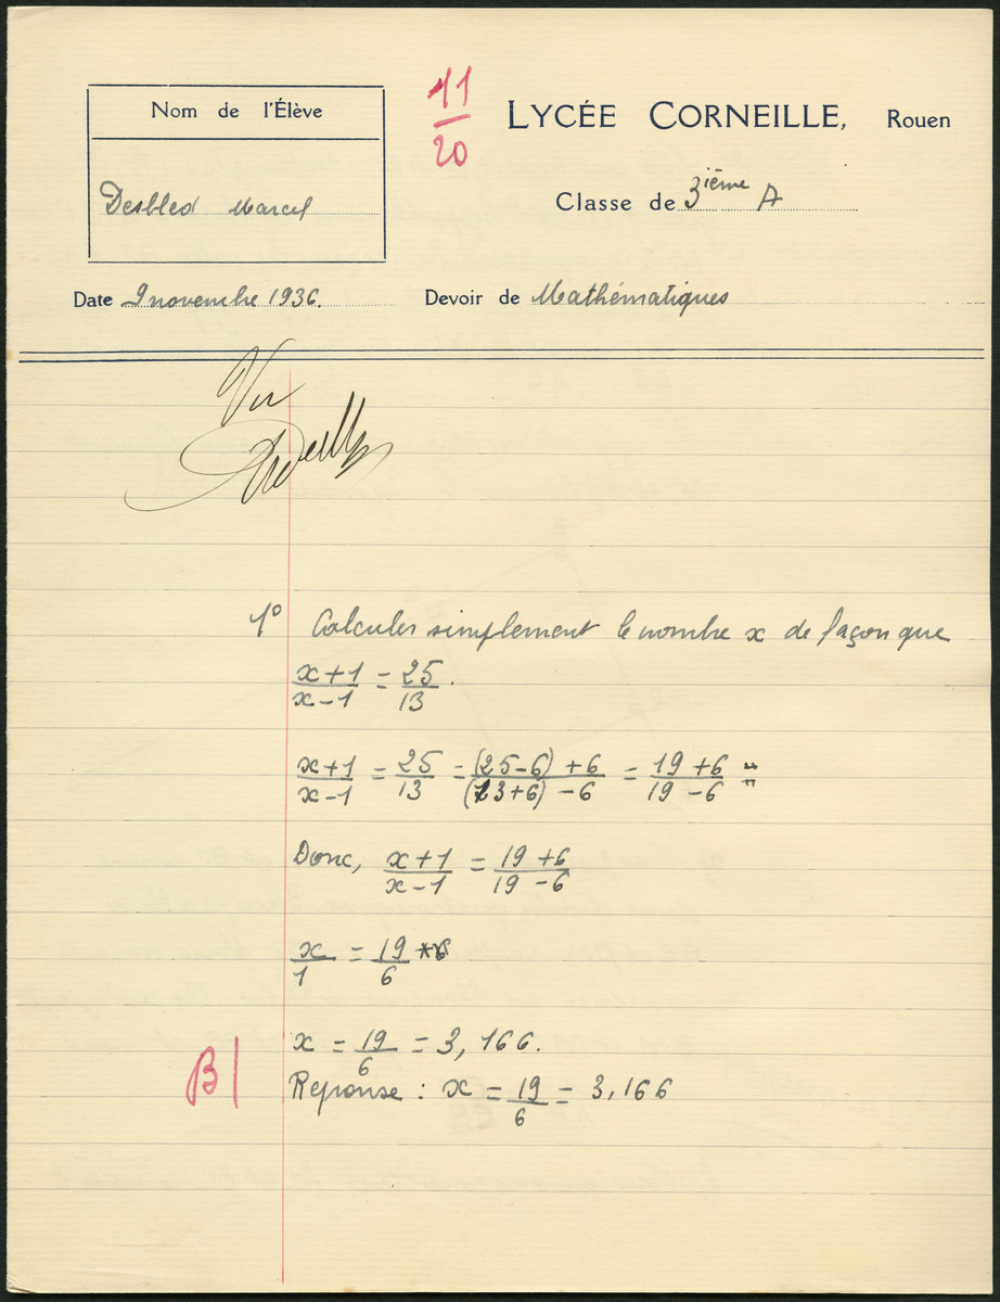 Nom de l'Élève
11
20
LYCÉE CORNEILLE, Rouen
Desbled Marcel
Classe de 3ième A
Date 9 novembre 1936.
Devoir de Mathématiques
Vu
1° Calculer simplement le nombre x de façon que
x+1/x-1 = 25/13.
x+1/x-1 = 25/13 = (25-6)+6/(13+6)-6 = 19+6/19-6 =
Donc, x+1/x-1 = 19+6/19-6
x/1 = 19/6
x = 19/6 = 3,166.
B
Reponse : x = 19/6 = 3,166